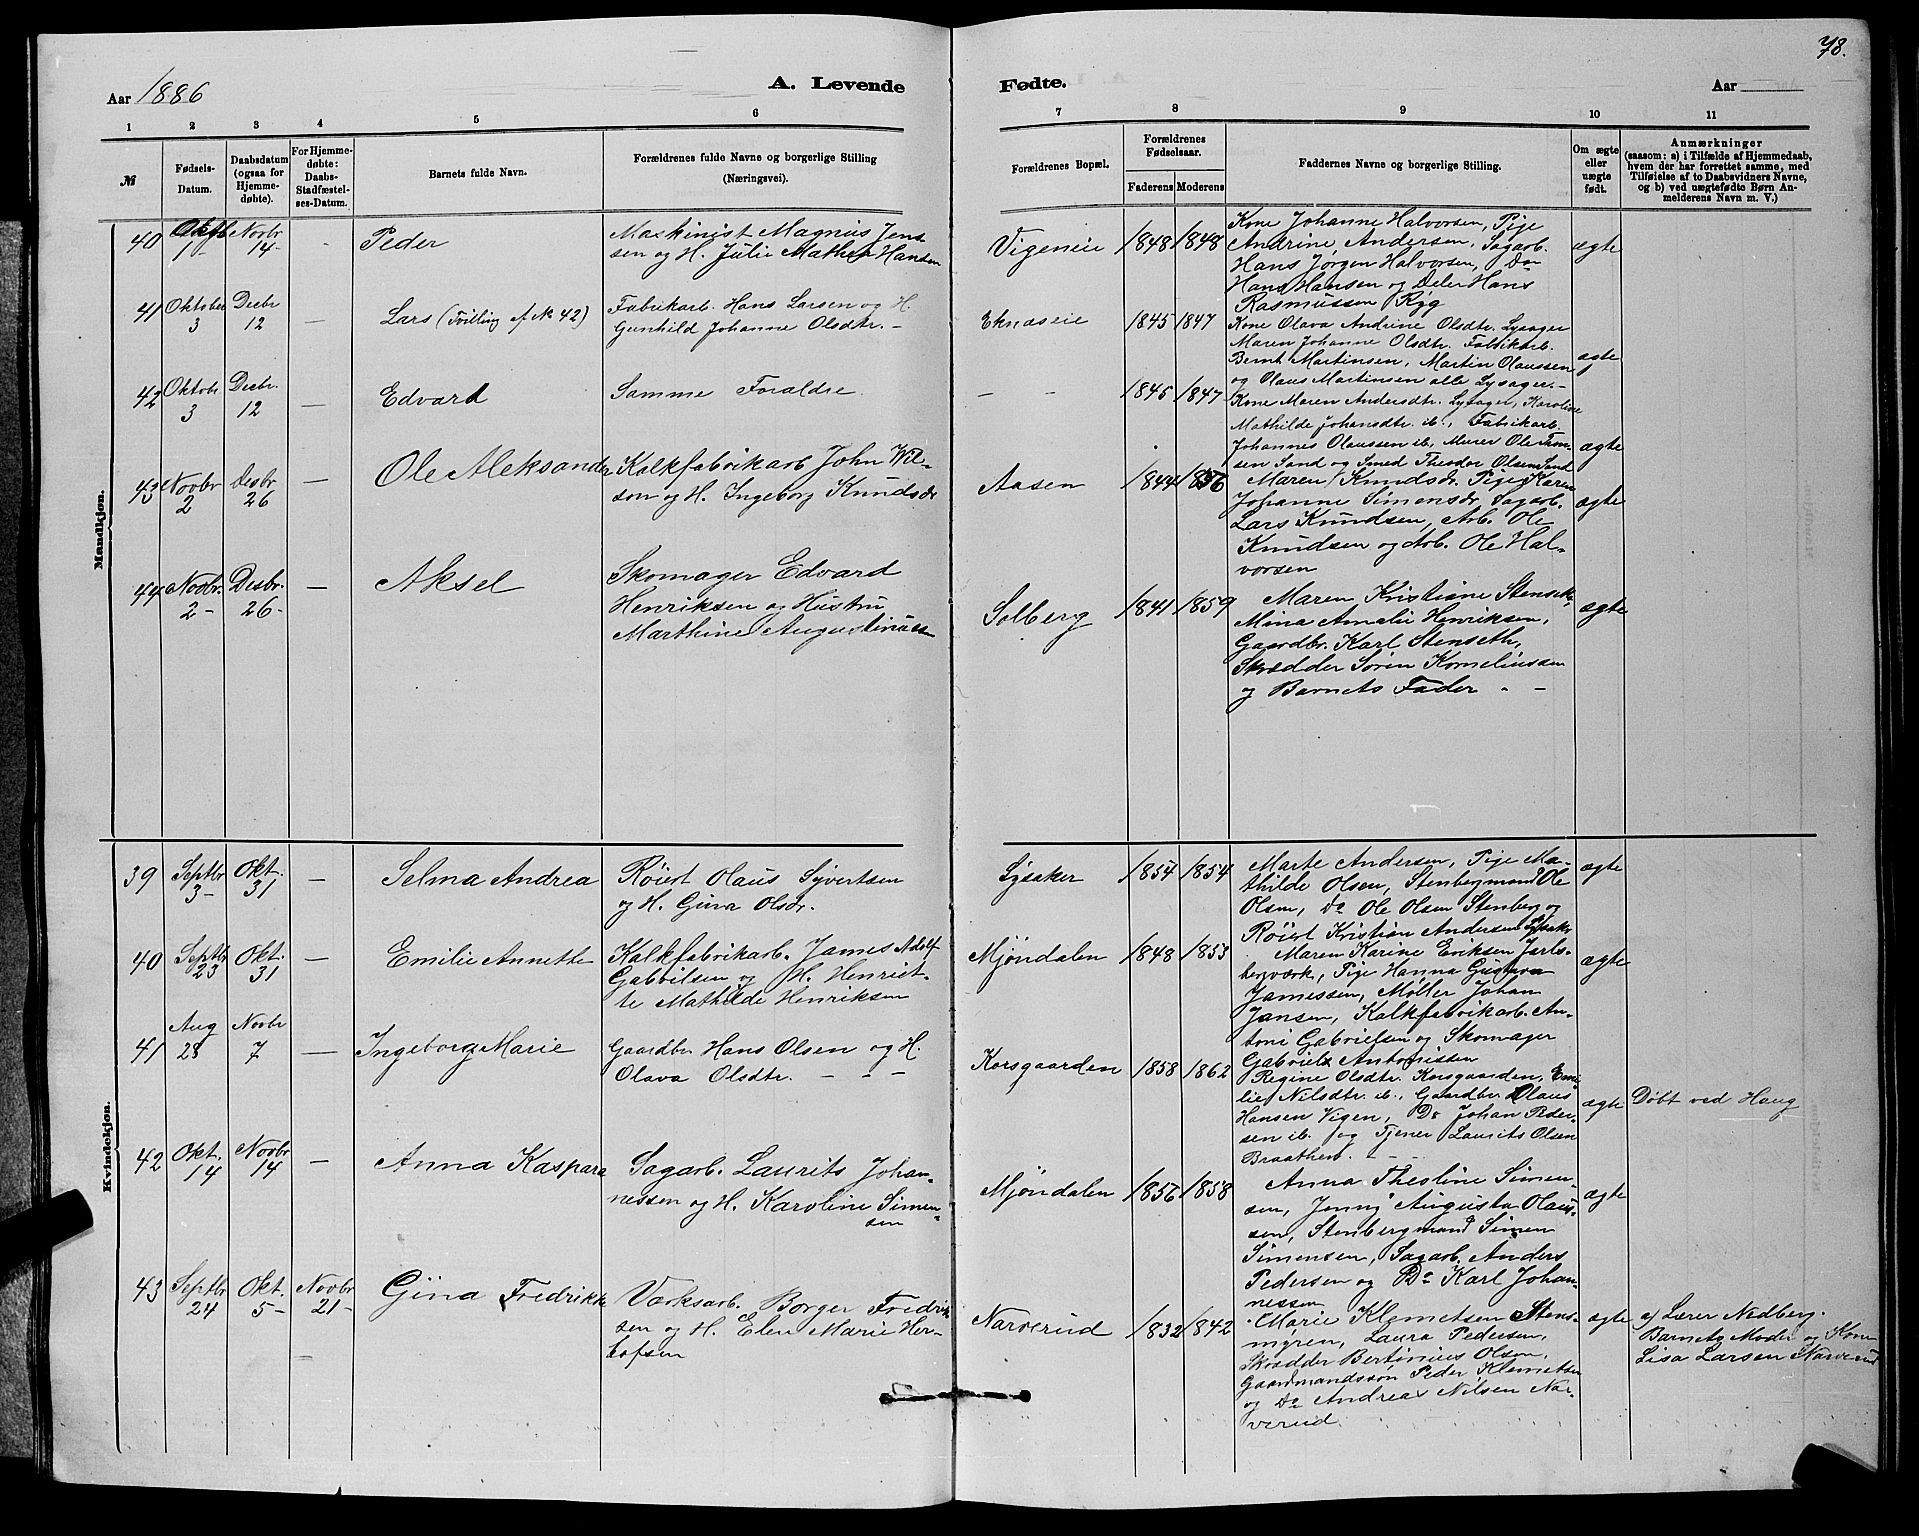 78.
Aar 1886
A. Levende
Fødte.
Aar
1 2 3 4 5 6
7 8 9 10 11
№
Fødsels-Datum.
Daabsdatum (ogsaa for Hjemme-døbte).
For Hjemme-døbte: Daabs-Stadfæstel-ses-Datum.
Barnets fulde Navn.
Forældrenes fulde Navne og borgerlige Stilling (Næringsvei).
Forældrenes Bopæl.
Forældrenes Fødselsaar.
Faderens Moderens
Faddernes Navne og borgerlige Stilling
Om ægte eller uægte født.
Anmærkninger
(saasom: a) i Tilfælde af Hjemmedaab,
hvem der har forrettet samme, med
Tilføielse af to Daabsvidners Navne,
og b) ved uægtefødte Børn An-
melderens Navn m. V.)
Mandkjøn.
40 Oktb 1- Novbr 14- - Peder
Maskinist Magnus Jens
sen og H. Julie Mathea Hansen
Vigeneie 1848 1848
Kone Johanne Halvorsen, Pige
Andrine Andersen, Sagarb.
Hans Jørgen Halvorsen, Do
Hans Hansen og Do Hans
Rasmussen Ryg
ægte
41 Oktober 3 Decbr 12 — Lars (Tvilling af № 42)
Fabrikarb. Hans Larsen og H.
Gunhild Johanne Olsdtr. -
Eknæseie 1845 1847
Kone Olava Andrine Olsdtr. Lysager
Maren Johanne Olsdtr. Fabrikarb.
Bernt Martinsen, Martin Olaussen
og Olaus Martinsen alle Lysager.-
ægte
42 Oktobr 3 Decbr. 12 — Edvard
Samme Foraldre.
- - 1845 1847
Kone Maren Andersdtr. Lysager, Karoline
Mathilde Johansdtr. ib., Fabrikarb.
Johannes Olaussen ib, Murer Ole Sim-
sen Sand og Smed Theodor Olsen Sand
ægte
43 Novbr 2 Desbr 26 — Ole Aleksander
Kalkfabrikarb John Wil-
son og H. Ingeborg Knudsdr
Aasen 1844 1856
Maren Knudsdr. Pige Karen
Johanne Simensdr, Sagarb.
Lars Knudsen, Arb. Ole
Knudsen og Arb. Ole Hal-
vorsen
ægte
44 Novbr. 2- Desbr. 26- — Aksel
Skomager Edvard
Henriksen og Hustru
Marthine Augustinusen
Solberg 1841 1859
Maren Kristiane Stenseth,
Mina Amalie Henriksen,
Gaardbr. Karl Stenseth,
Skrædder Søren Korneliussen
og Barnets Fader - -
ægte
Kvindekjøn.
39 Septbr 3- Okt. 31 — Selma Andrea
Røiert Olaus Syvertsen
og H. Gina Olsdr.
Lysaker 1854 1854
Marte Andersen, Pige Ma-
thilde Olsen, Stenbergmand Ole
Olsen, Do Ole Olsen Stenberg og
Røiert Kristian Andersen Lysaker
ægte
40 Septbr 23 Okt. 31 — Emilie Annette
Kalkfabrikarb. James Adolf
Gabrilsen og H. Henriet-
te Mathilde Henriksen
Mjøndalen 1848 1853
Maren Karine Eriksen Jarls-
bergværk, Pige Hanna Gustava
Jamessen, Møller Johan
Jansen, Kalkfabrikarb. An-
toni Gabrielsen og Skomager
Gabriel Antonissen
ægte
41 Aug 28 Novbr 7 — Ingeborg Marie
Gaardbr Hans Olsen og H.
Olava Olsdtr. - - -
Korsgaarden 1858 1862
Regine Olsdtr. Korsgaarden, Emi-
lie Nilsdtr. ib., Gaardbr. Olaus
Hansen Vigen, Do Johan Peder-
sen ib. og Tjener Laurits Olsen
Braathen. - -
ægte Døbt ved Haug
42 Okt. 14 Novbr 14 — Anna Kaspara
Sagarb. Laurits Johan-
nessen og H. Karoline Simen-
sen
Mjøndalen 1856 1858
Anna Theoline Simen-
sen, Jenny Augusta Olaus-
sen, Stenbergmand Simen
Simensen, Sagarb. Anders
Pedersen og Do Karl Johan-
nessen
ægte
43 Septbr 24 Okt. 5- Novbr 21- Gina Fredrikke
Værksarb. Borger Fredrik
sen og H. Elen Marie Her-
lofsen
Narverud 1832 1842
Marie Klemetsen Stens-
myren, Laura Pedersen,
Skrædder Bertinius Olsen,
Gaardmandssøn Peder Klemetsen
og Do Andreas Nilsen Nar-
verud
ægte
a) Lærer Nedberg.
Barnets Moder og Kone
Lisa Larsen Narverud